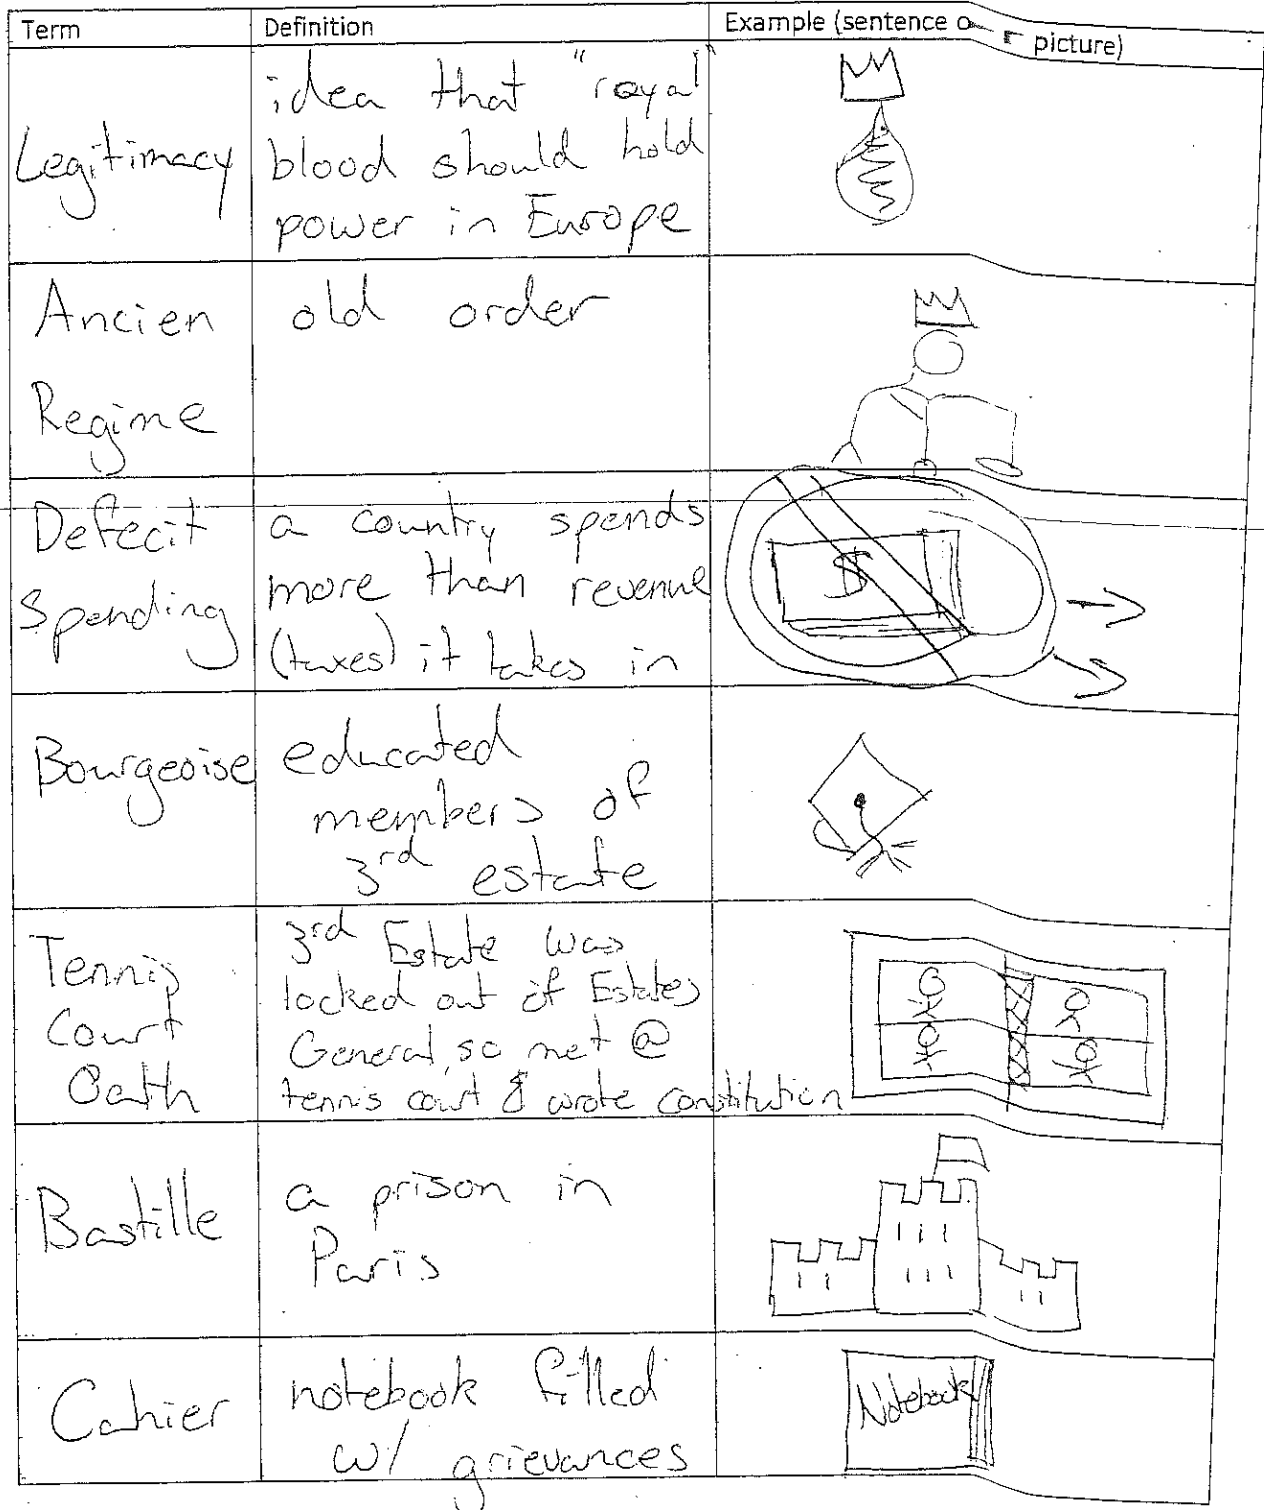 Term Definition Example (sentence or picture)
Legitimacy
idea that "royal"
blood should hold
power in Europe
Ancien
Regime
old order
Defecit
Spending
a country spends
more than revenue
(taxes) it takes in
$
Bourgeoise
educated
members of
3rd estate
Tennis
Court
Oath
3rd Estate was
locked out of Estates
General, so met @
tennis court & wrote constitution
Bastille
a prison in
Paris
Cahier
notebook filled
w/ grievances
Notebook